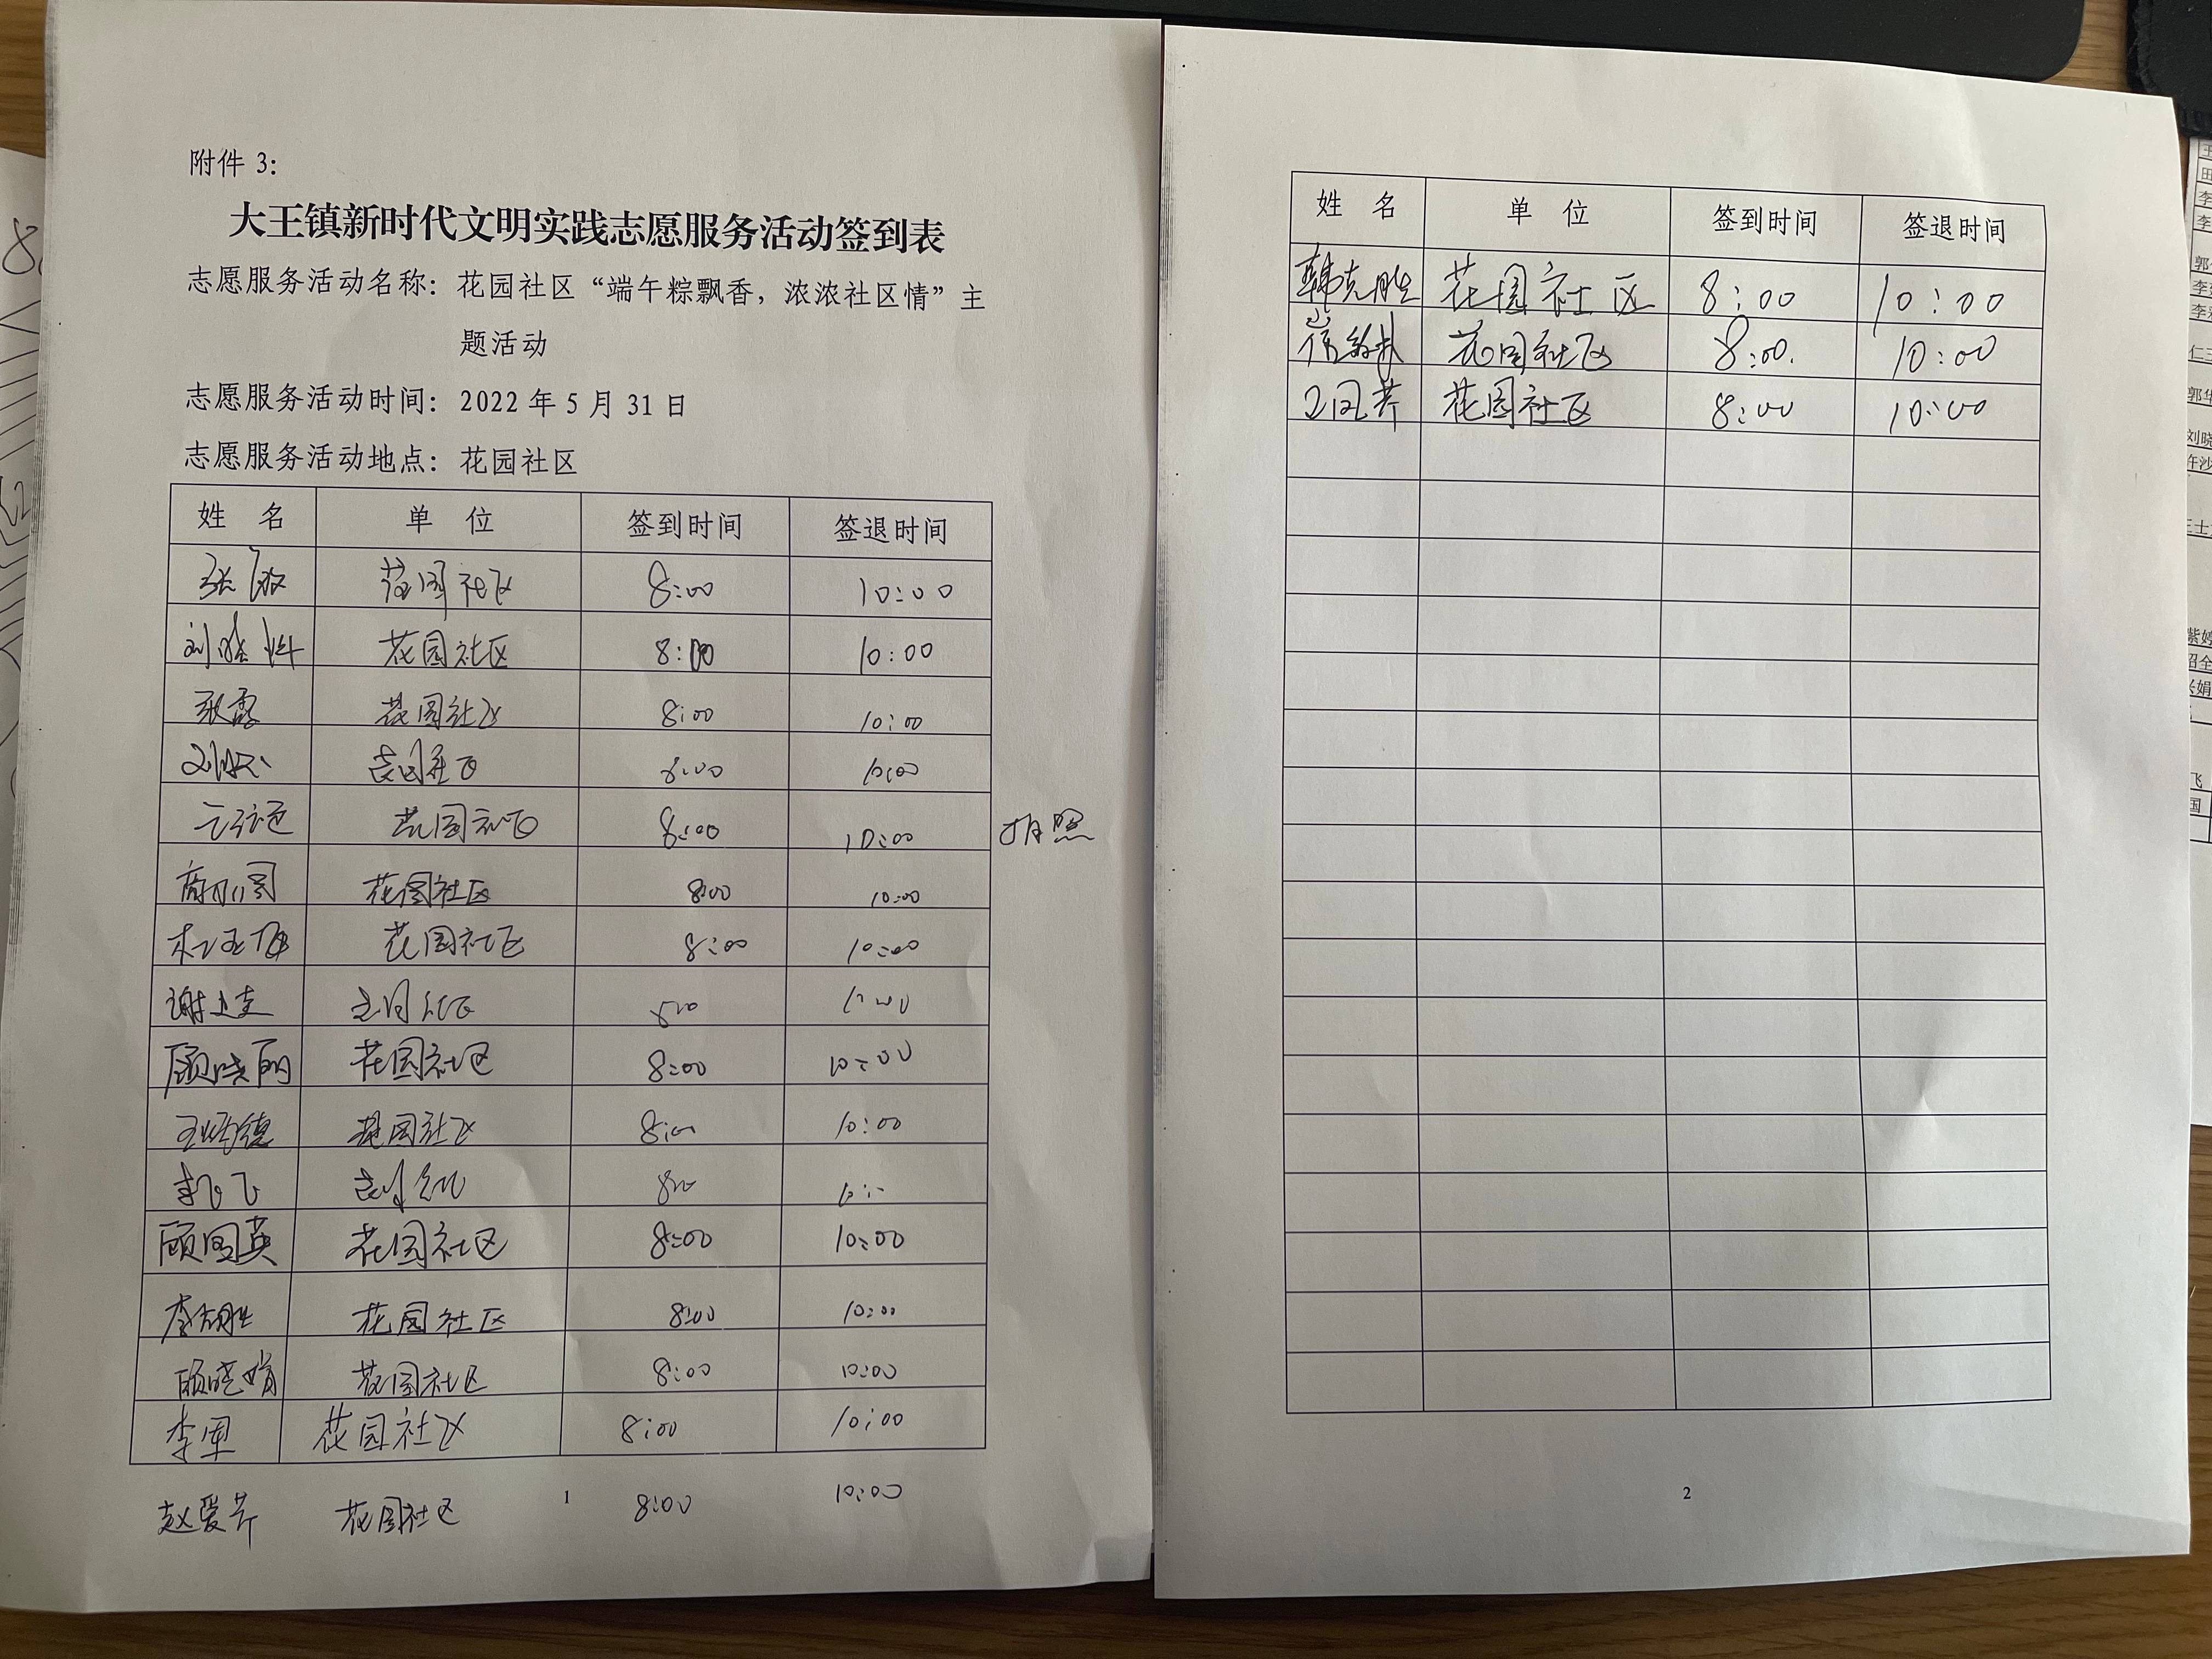 附件 3：
大王镇新时代文明实践志愿服务活动签到表
志愿服务活动名称：花园社区“端午粽飘香，浓浓社区情”主
题活动
志愿服务活动时间：2022 年 5 月 31 日
志愿服务活动地点：花园社区
姓 名 单 位 签到时间 签退时间
张 花园社区 8:00 10:00
刘晓 花园社区 8:00 10:00
张霞 花园社区 8:00 10:00
花园社区 8:00 10:00
花园社区 8:00 10:00 拍照
商 花园社区 8:00 10:00
花园社区 8:00 10:00
谢 花园社区
顾晓丽 花园社区 8:00 10:00
王 德 花园社区 8:00 10:00
李飞飞
顾国英 花园社区 8:00 10:00
李 胜 花园社区 8:00 10:00
顾晓娟 花园社区 8:00 10:00
李军 花园社区 8:00 10:00
赵爱芹 花园社区 8:00 10:00
1
姓 名 单 位 签到时间 签退时间
韩克胜 花园社区 8:00 10:00
崔 花园社区 8:00. 10:00
花园社区 8:00 10:00
2